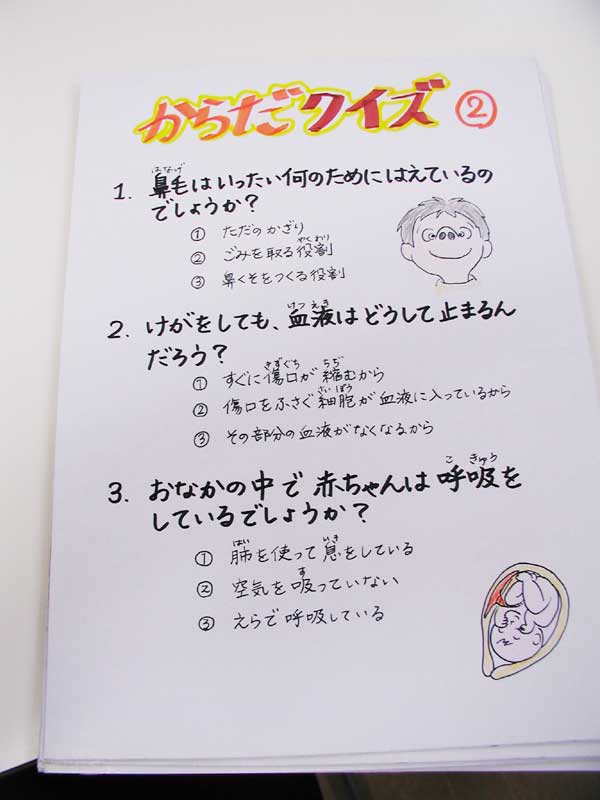 からだクイズ ②
1. 鼻毛はいったい何のためにはえているの
でしょうか?
① ただのかざり
② ごみを取る役割
③ 鼻くそをつくる役割
2. けがをしても、血液はどうして止まるん
だろう?
① すぐに傷口が縮むから
② 傷口をふさぐ細胞が血液に入っているから
③ その部分の血液がなくなるから
3. おなかの中で赤ちゃんは呼吸を
しているでしょうか?
① 肺を使って息をしている
② 空気を吸っていない
③ えらで呼吸している